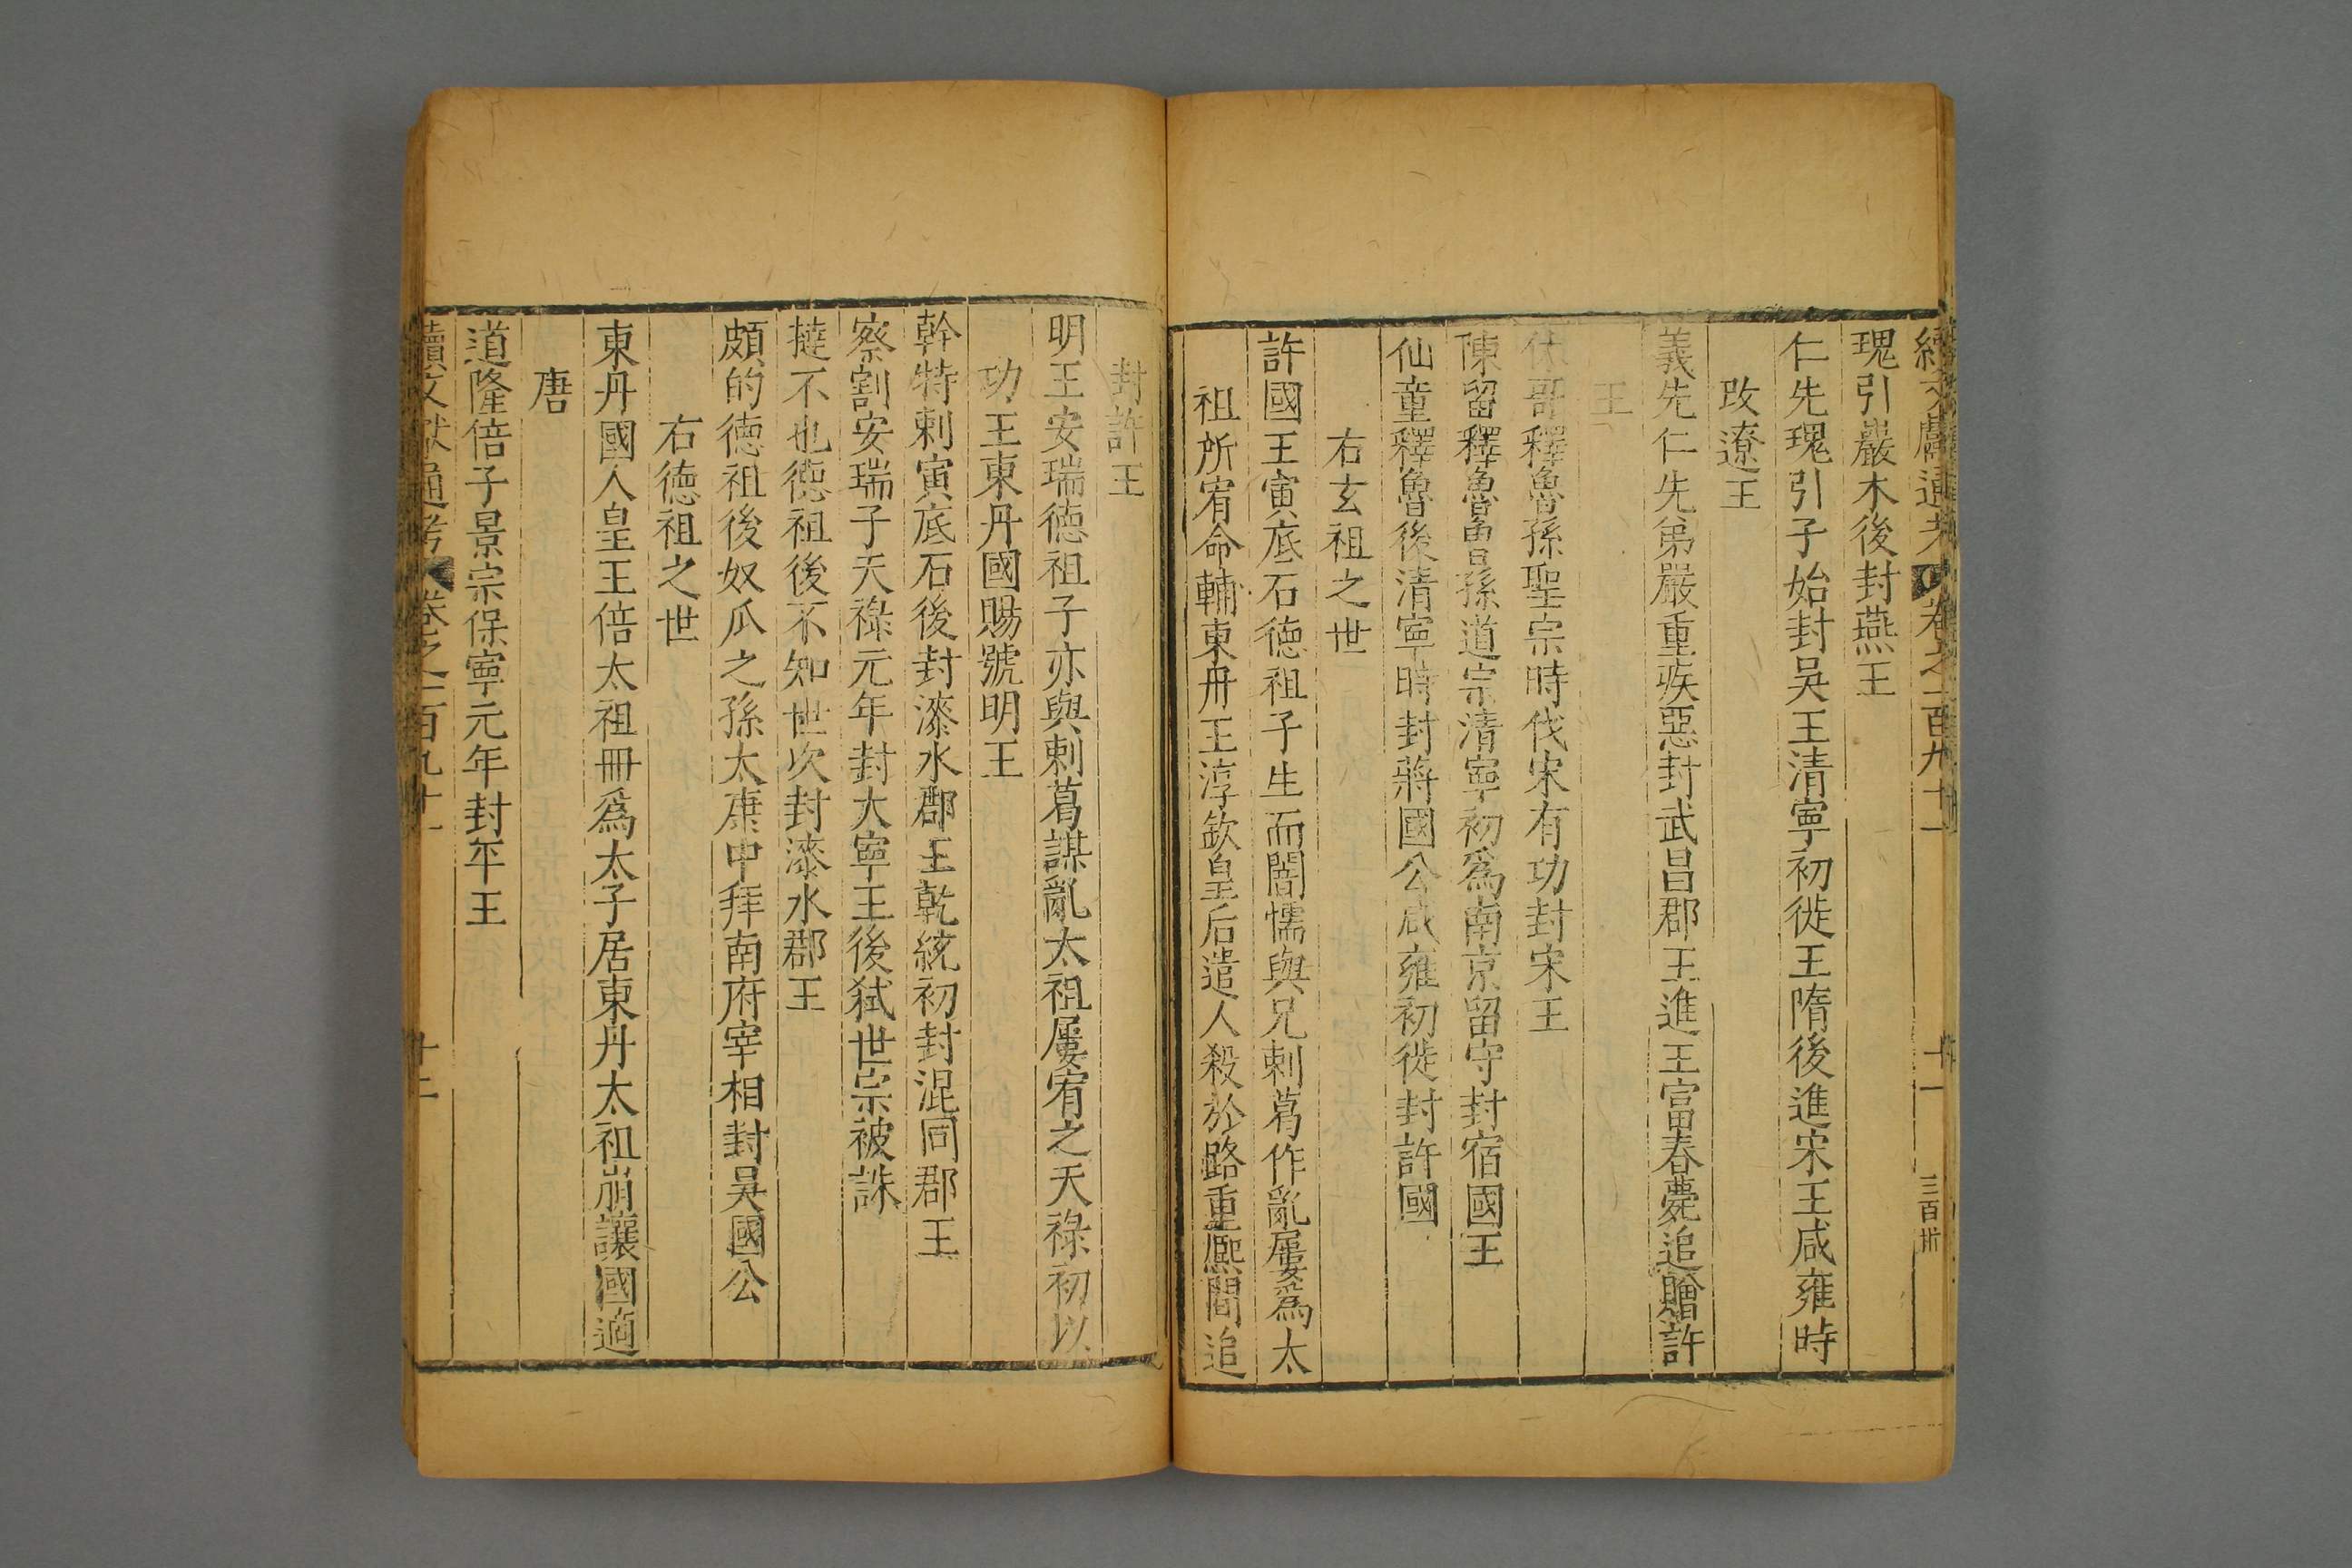 續文獻通考 卷之二百九十一 十一 三百卅
瑰引巖木後封燕王
仁先瑰引子始封吳王清寧初徙王隋後進宋王咸雍時
改遼王
義先仁先弟嚴重疾惡封武昌郡王進王富春薨追贈許
王
休哥釋魯孫聖宗時伐宋有功封宋王
陳留釋魯魯孫道宗清寧初爲南京留守封宿國王
仙童釋魯後清寧時封蔣國公咸雍初徙封許國
右玄祖之世
許國王寅底石德祖子生而闇懦與兄剌葛作亂屢爲太
祖所宥命輔東丹王淳欽皇后遣人殺於路重熙間追
封許王
明王安瑞德祖子亦與剌葛謀亂太祖屢宥之天祿初以
功王東丹國賜號明王
幹特剌寅底石後封漆水郡王乾統初封混同郡王
察割安瑞子天祿元年封大寧王後弒世宗被誅
撻不也德祖後不知世次封漆水郡王
頗的德祖後奴瓜之孫太康中拜南府宰相封吳國公
右德祖之世
東丹國人皇王倍太祖冊爲太子居東丹太祖崩讓國適
唐
道隆倍子景宗保寧元年封平王
續文獻通考 卷之二百九十一 十二